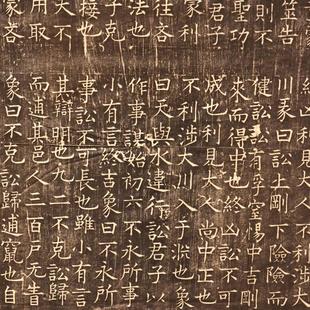 筮告
則不
聖功
君子
家利
往吝
法也
子克
接也
大不
用取
家吝
終凶利見大人不利涉
川彖曰訟上剛下險險而
健訟訟有孚窒惕中吉剛
來而得中也終凶訟不可
成也利見大人尚中正也
不利涉大川入于淵也象
曰天與水違行訟君子以
作事謀始初六不永所事
小有言終吉象曰不永所
事訟不可長也雖小有言
其辯明也九二不克訟歸
而逋其邑人三百戶无眚
象曰不克訟歸逋竄也自